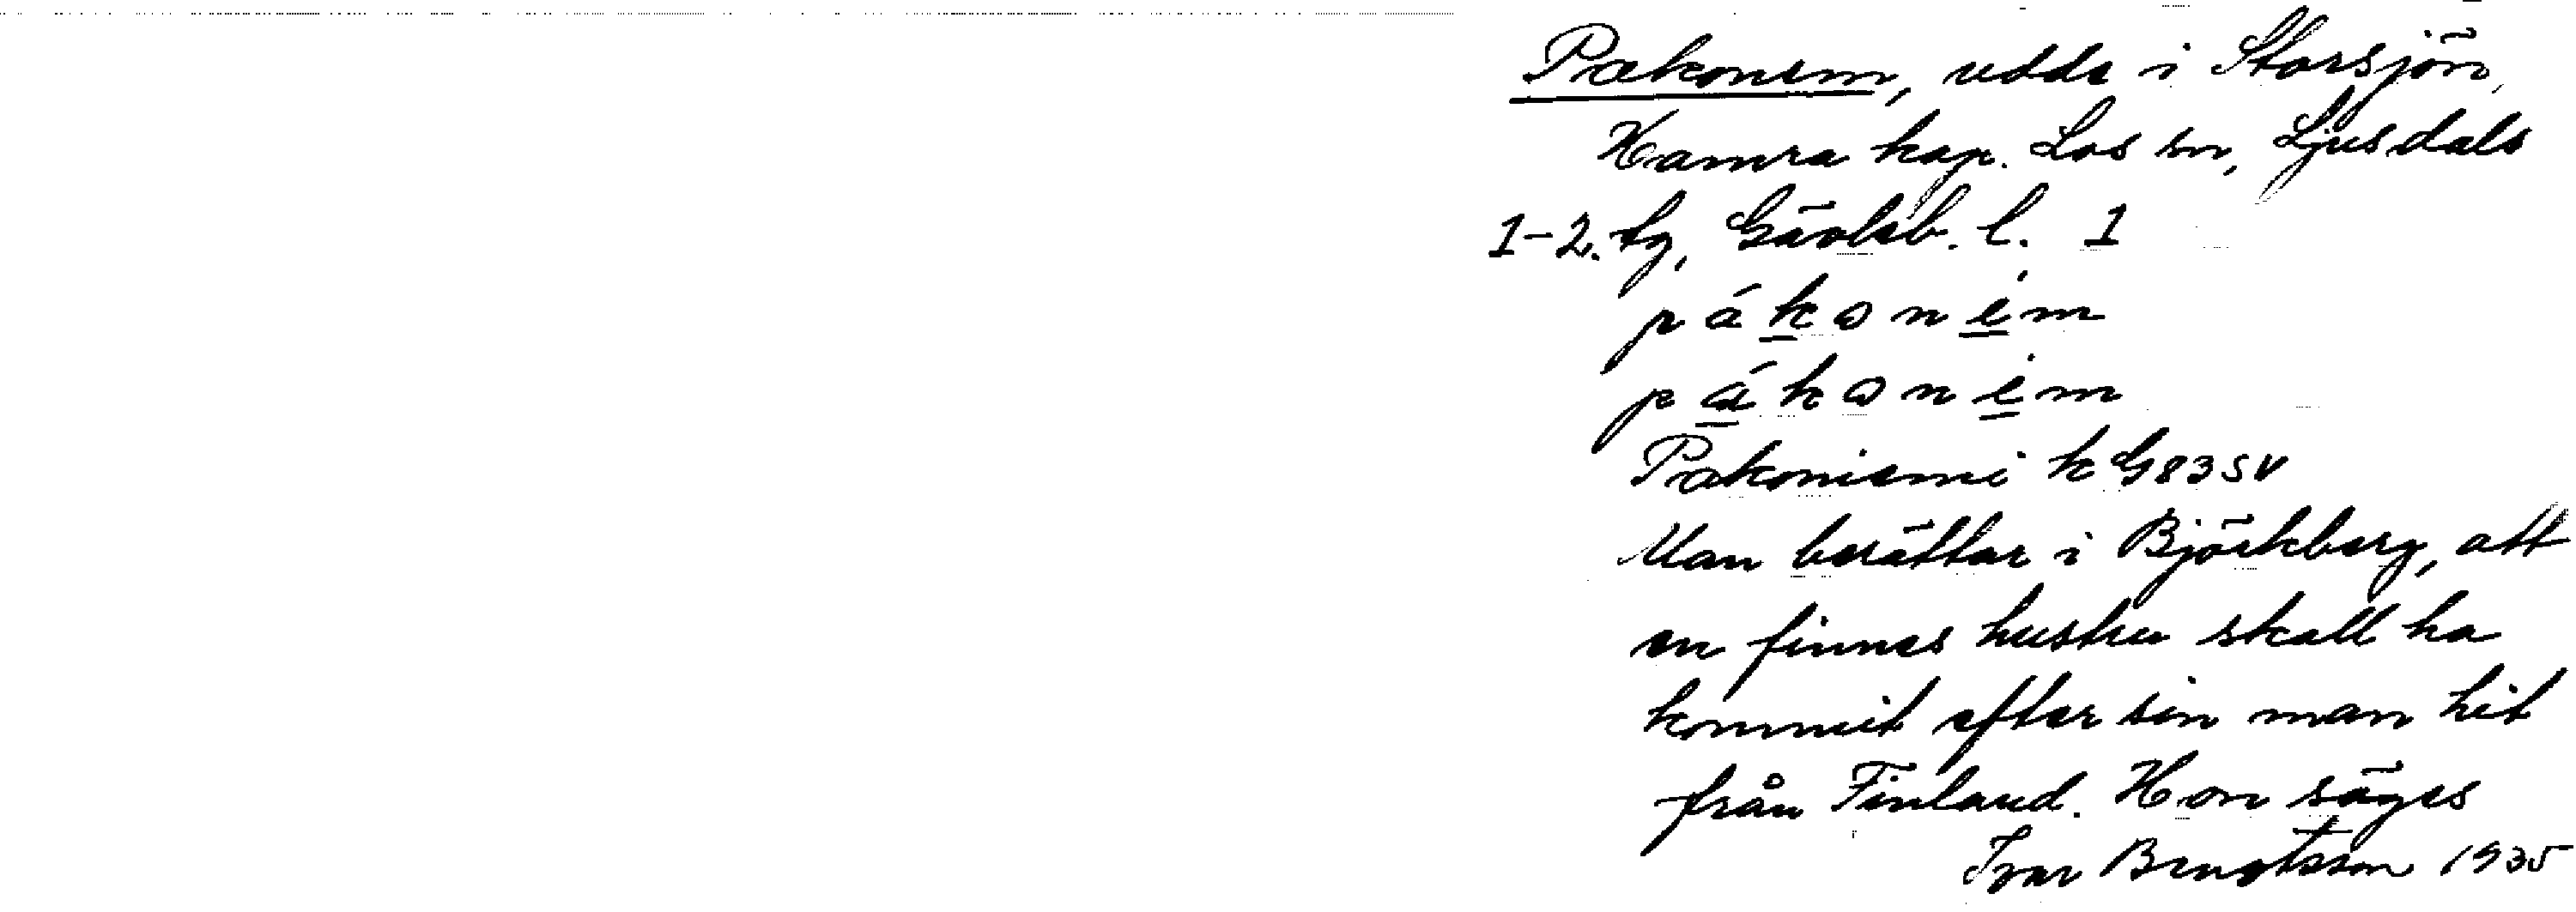 Pakonem, udde i Storsjön,
Hamra kap. Los sn, Ljusdals
1-2. tg, Gävleb. l. 1
p á k o n e m
p á k o n e m
Pakoniemi k G83SV
Man berättar i Björkberg, att
en finnes hustru skall ha
kommit efter sin man hit
från Finland. Hon säges
Ivar Bengtsson 1935